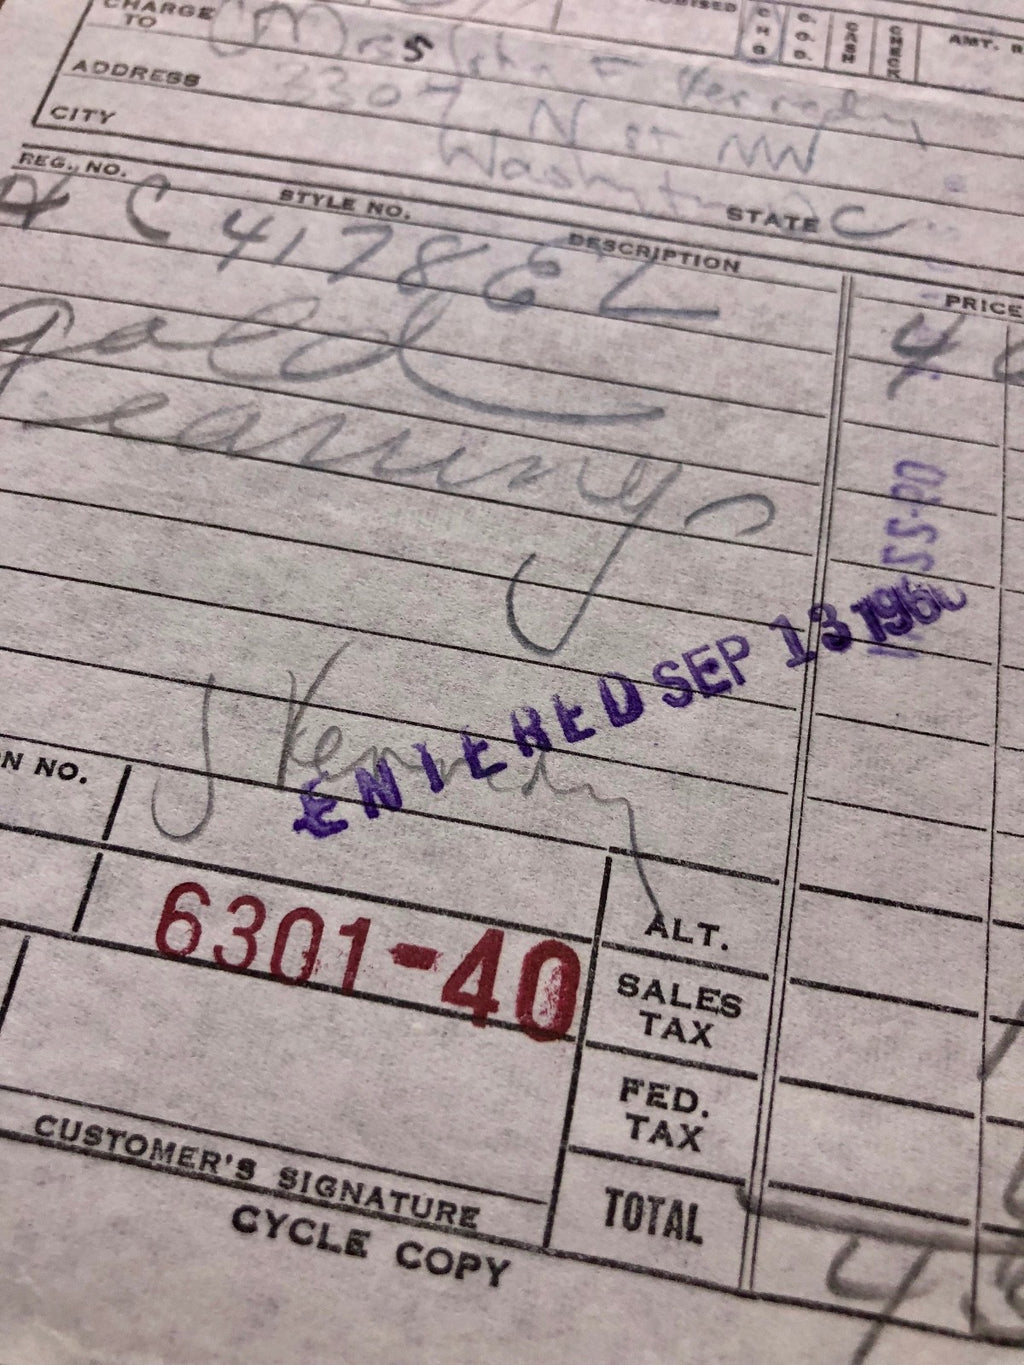 C H G
C. O. D.
CASH
CHECK
AMT. R
CHARGE TO Mrs John F Kennedy
ADDRESS 3307 N St NW
CITY Washington
STATE C
REG. NO. STYLE NO. DESCRIPTION PRICE
C 4178 E L 4
gold
earrings
SS-PO
ENTERED SEP 13 1960
J Kennedy
N NO.
6301-40
ALT.
SALES TAX
FED. TAX
TOTAL 4
CUSTOMER'S SIGNATURE
CYCLE COPY